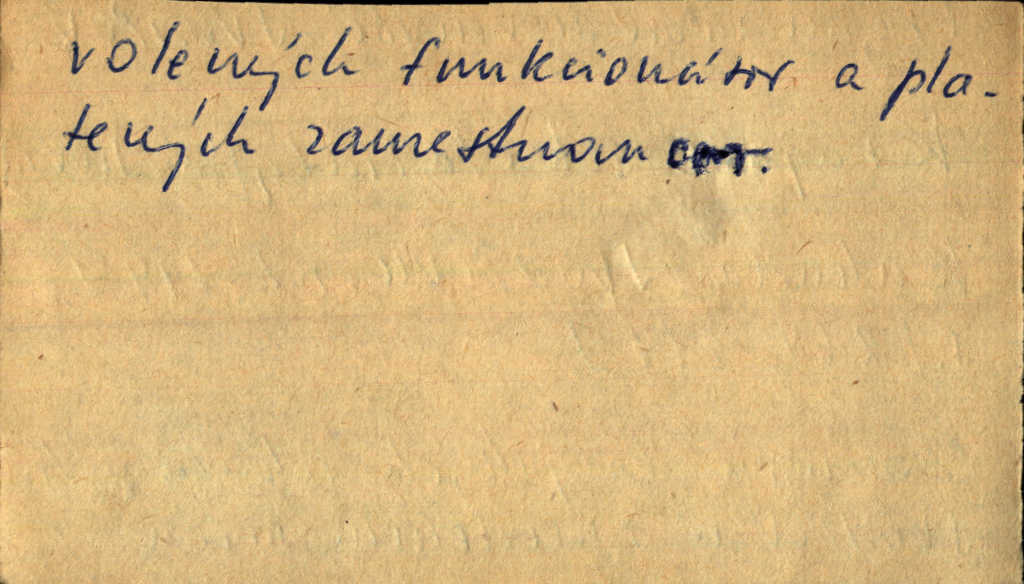 volených funkcionárov a pla-
tených zamestnancov.